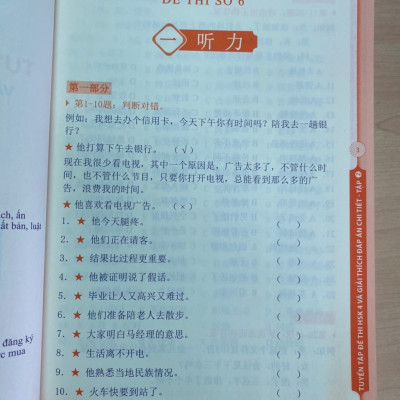 ĐỀ THI SỐ 6
一 听力
第一部分
第1-10题：判断对错。
例如：我想去办个信用卡，今天下午你有时间吗？陪我去一趟银
行？
★他打算下午去银行。 （√）
现在我很少看电视，其中一个原因是，广告太多了，不管什么时
间，也不管什么节目，只要你打开电视，总能看到那么多的广
告，浪费我的时间。
★他喜欢看电视广告。 （×）
1. ★ 他今天腿疼。 （ ）
2. ★ 他们正在请客。 （ ）
3. ★ 结果比过程更重要。 （ ）
4. ★ 他被证明说了假话。 （ ）
5. ★ 毕业让人又高兴又难过。 （ ）
6. ★ 他们准备陪老人去散步 （ ）
7. ★ 大家明白马经理的意思。 （ ）
8. ★ 生活离不开电。 （ ）
9. ★ 他熟悉当地民族情况。 （ ）
10. ★ 火车快要到站了。 （ ）
1
TUYỂN TẬP ĐỀ THI HSK 4 VÀ GIẢI THÍCH ĐÁP ÁN CHI TIẾT - TẬP 2
ch, ấn
ất bản, luật
đăng ký
c mua